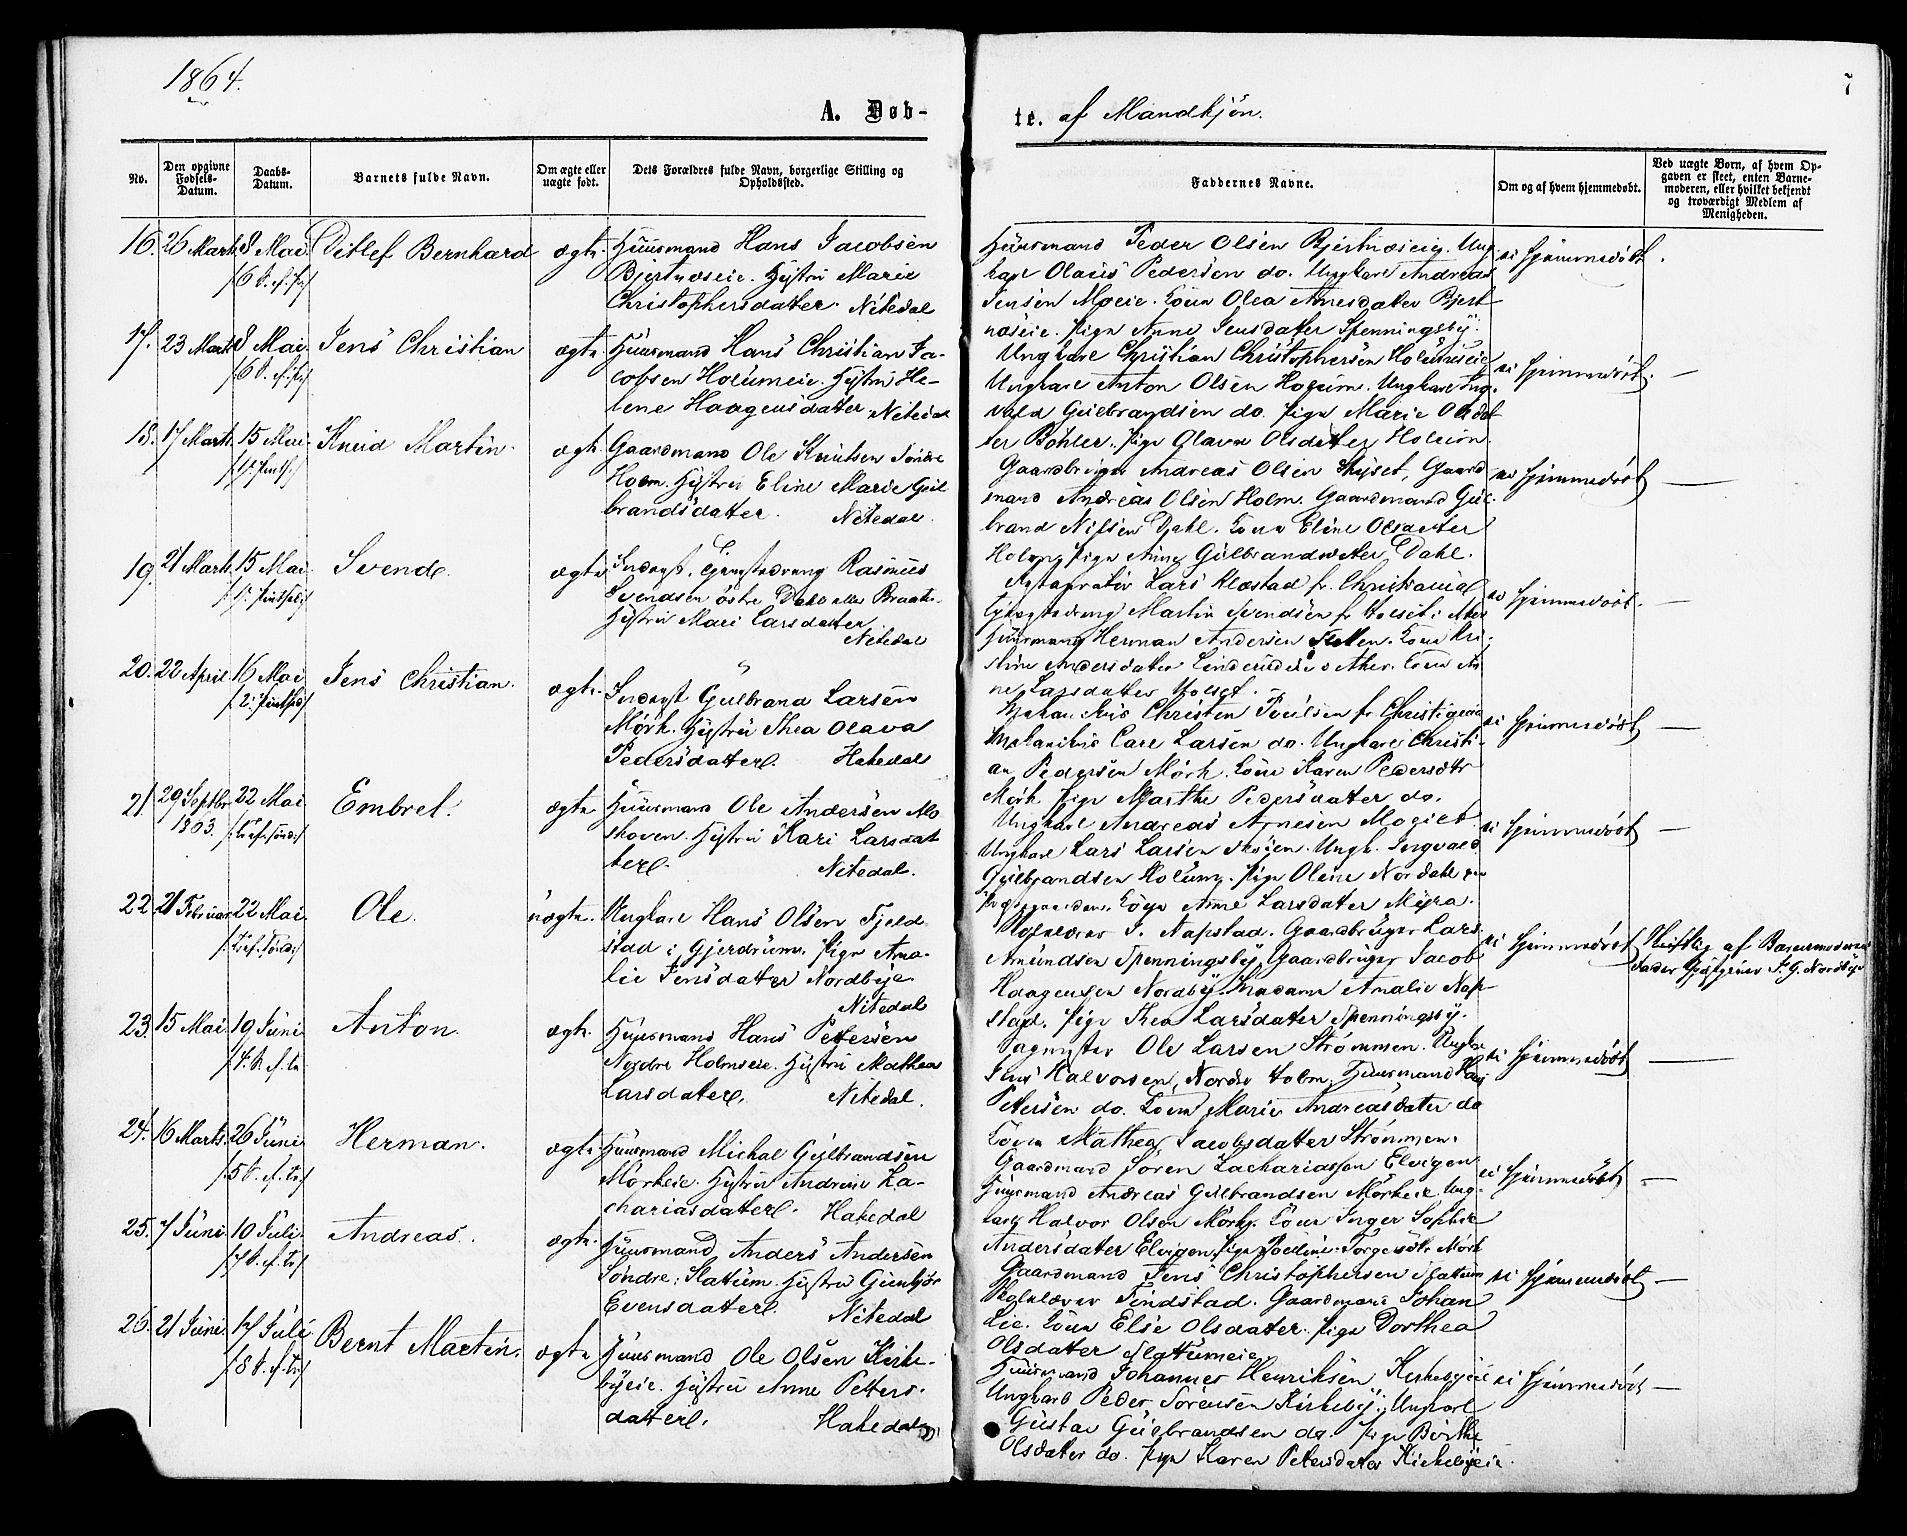 1864.
7
A. Døb-
te. af Mandkjøn.
No.
Den opgivne Fødsels-Datum.
Daabs-Datum.
Barnets fulde Navn.
Om ægte eller uægte født.
Dets Forældres fulde Navn, borgerlige Stilling og Opholdssted.
Faddernes Navne.
Om og af hvem hjemmedøbt.
Ved uægte Børn, af hvem Opgaven er skeet, enten Barnemoderen, eller hvilket bekjendt og troværdigt Medlem af Menigheden.
16. 26 Marts 8 Mai Ditlef Bernhard ægte Huusmand Hans Jacobsen
Bjertnæseie. Hustru Marie
Christophersdatter. Nitedal
Huusmand Peder Olsen Bjertnæseie. Ung-
karl Olaus Pedersen do. Ungkarl Andreas
Jensen Moeie. Kone Olea Arnesdatter Bjert-
næseie. Pige Anne Jensdatter Spenningsby.
ei hjemmedøbt.
17. 23 Marts 8 Mai Jens Christian ægte Huusmand Hans Christian Ja-
cobsen Holumeie. Hustru He-
lene Haagensdatter Nitedal
Ungkarl Christian Christophersen Holumseie
Ungkarl Anton Olsen Holum. Ungkarl Ing-
vald Gulbrandsen do. Pige Marie Olsdat
ter Bøhler. Pige Olava Olsdatter Holum.
ei hjemmedøbt. —
18. 17 Marts 15 Mai Knud Martin. ægte Gaardmand Ole Knutsen Søndre
Holm. Hustru Eline Marie Gul
brandsdatter. Nitedal.
Gaardbruger Andreas Olsen Skyset, Gaard
mand Andreas Olsen Holm. Gaardmand Gul-
brand Nilsen Dahl. Kone Eline Olsdatter
Holm, Pige Anne Gulbrandsdatter Dahl.
ei hjemmedøbt —
19. 21 Marts 15 Mai Svend. ægte Inderst, Rasmus
Svendsen østre Dahl eller Braate.
Hustru Mari Larsdatter
Nitedal
Lars Klæstad fr. Christiania
Martin Svendsen fr. Holset i Aker
Huusmand Herman Andersen Kone Kri-
stine Andersdatter Linderudeie Aker. Kone An
ne Larsdatter Holset.
ei hjemmedøbt. —
20. 22 April 16 Mai Jens Christian. ægte Inderst Gulbrand Larsen
Mørk. Hustru Thea Olava
Pedersdatter. Hakedal
Christen Poulsen fr. Christiania
Carl Larsen do. Ungkarl Christi-
an Pedersen Mørk. Kone Karen Pedersdtr
Mørk. Pige Marthe Pedersdatter do.
ei hjemmedøbt —
21. 29 Septbr 1863. 22 Mai Embret. ægte Huusmand Ole Andersen Mo
skoven. Hustru Kari Larsdat
ter. Nitedal.
Ungkarl Andreas Arnesen
Ungkarl Lars Larsen Skøien. Ungk. Ingvald
Gulbrandsen Holum. Pige Oline Nordahl
Kone Anne Larsdatter Myra.
ei hjemmedøbt —
22. 21 Februar 22 Mai Ole. uægte. Ungkarl Hans Olsen Fjeld
stad i Gjerdrum. Pige Ama-
lie Jensdatter Nordbye
Nitedal
Skolelærer J. Napstad. Gaardbruger Lars
Amundsen Spenningsby, Gaardbruger Jacob
Haagensen Nordby. Madame Amalie Nap-
stad. Pige Thea Larsdatter Spenningsby.
ei hjemmedøbt Skriftlig af Barnemoderens
Fader J. G. Nordbye
23. 15 Mai 19 Juni Anton. ægte Huusmand Hans Pettersen
Nordre Holmseie. Hustru Mathea
Larsdatter. Nitedal.
Ole Larsen Strømmen. Ungkarl
Jens Halvorsen, Nordre Holm. Huusmand Hans
Petersen do. Kone Marie Andreasdatter do
Kone Mathea Jacobsdatter Strømmen.
ei hjemmedøbt —
24. 16 Marts. 26 Juni Herman. ægte Huusmand Michal Gulbrandsen
Mørkeie. Hustru Andrine Za-
chariasdatter. Hakedal
Gaardmand Søren Zachariassen Elvigen
Huusmand Andreas Gulbrandsen Mørkeie. Ung-
karl Halvor Olsen Mørk. Kone Inger Sophie
Andersdatter Elvigen. Pige Pouline Torgersdtr Mørk
ei hjemmedøbt —
25. 7 Juni 10 Juli Andreas. ægte Huusmand Anders Andersen
Søndre Slatum. Hustru Gunbjør
Evensdatter. Nitedal
Gaardmand Jens Christophersen Slattum
Skolelærer Tindstad. Gaardmand Johan
Lie. Kone Else Olsdatter. Pige Dorthea
Olsdatter Slatumeie.
ei hjemmedøbt —
26. 21 Juni 17 Juli Bernt Martin. ægte Huusmand Ole Olsen Kirke-
byeie. Hustru Anne Petters-
datter. Hakedal
Huusmand Johannes Henriksen Kirkebyeie
Ungkarl Peder Sørensen Kirkeby. Ungkarl
Gustav Gulbrandsen do. Pige Birthe
Olsdatter do. Pige Karen Petersdatter Kirkebyeie.
ei hjemmedøbt —